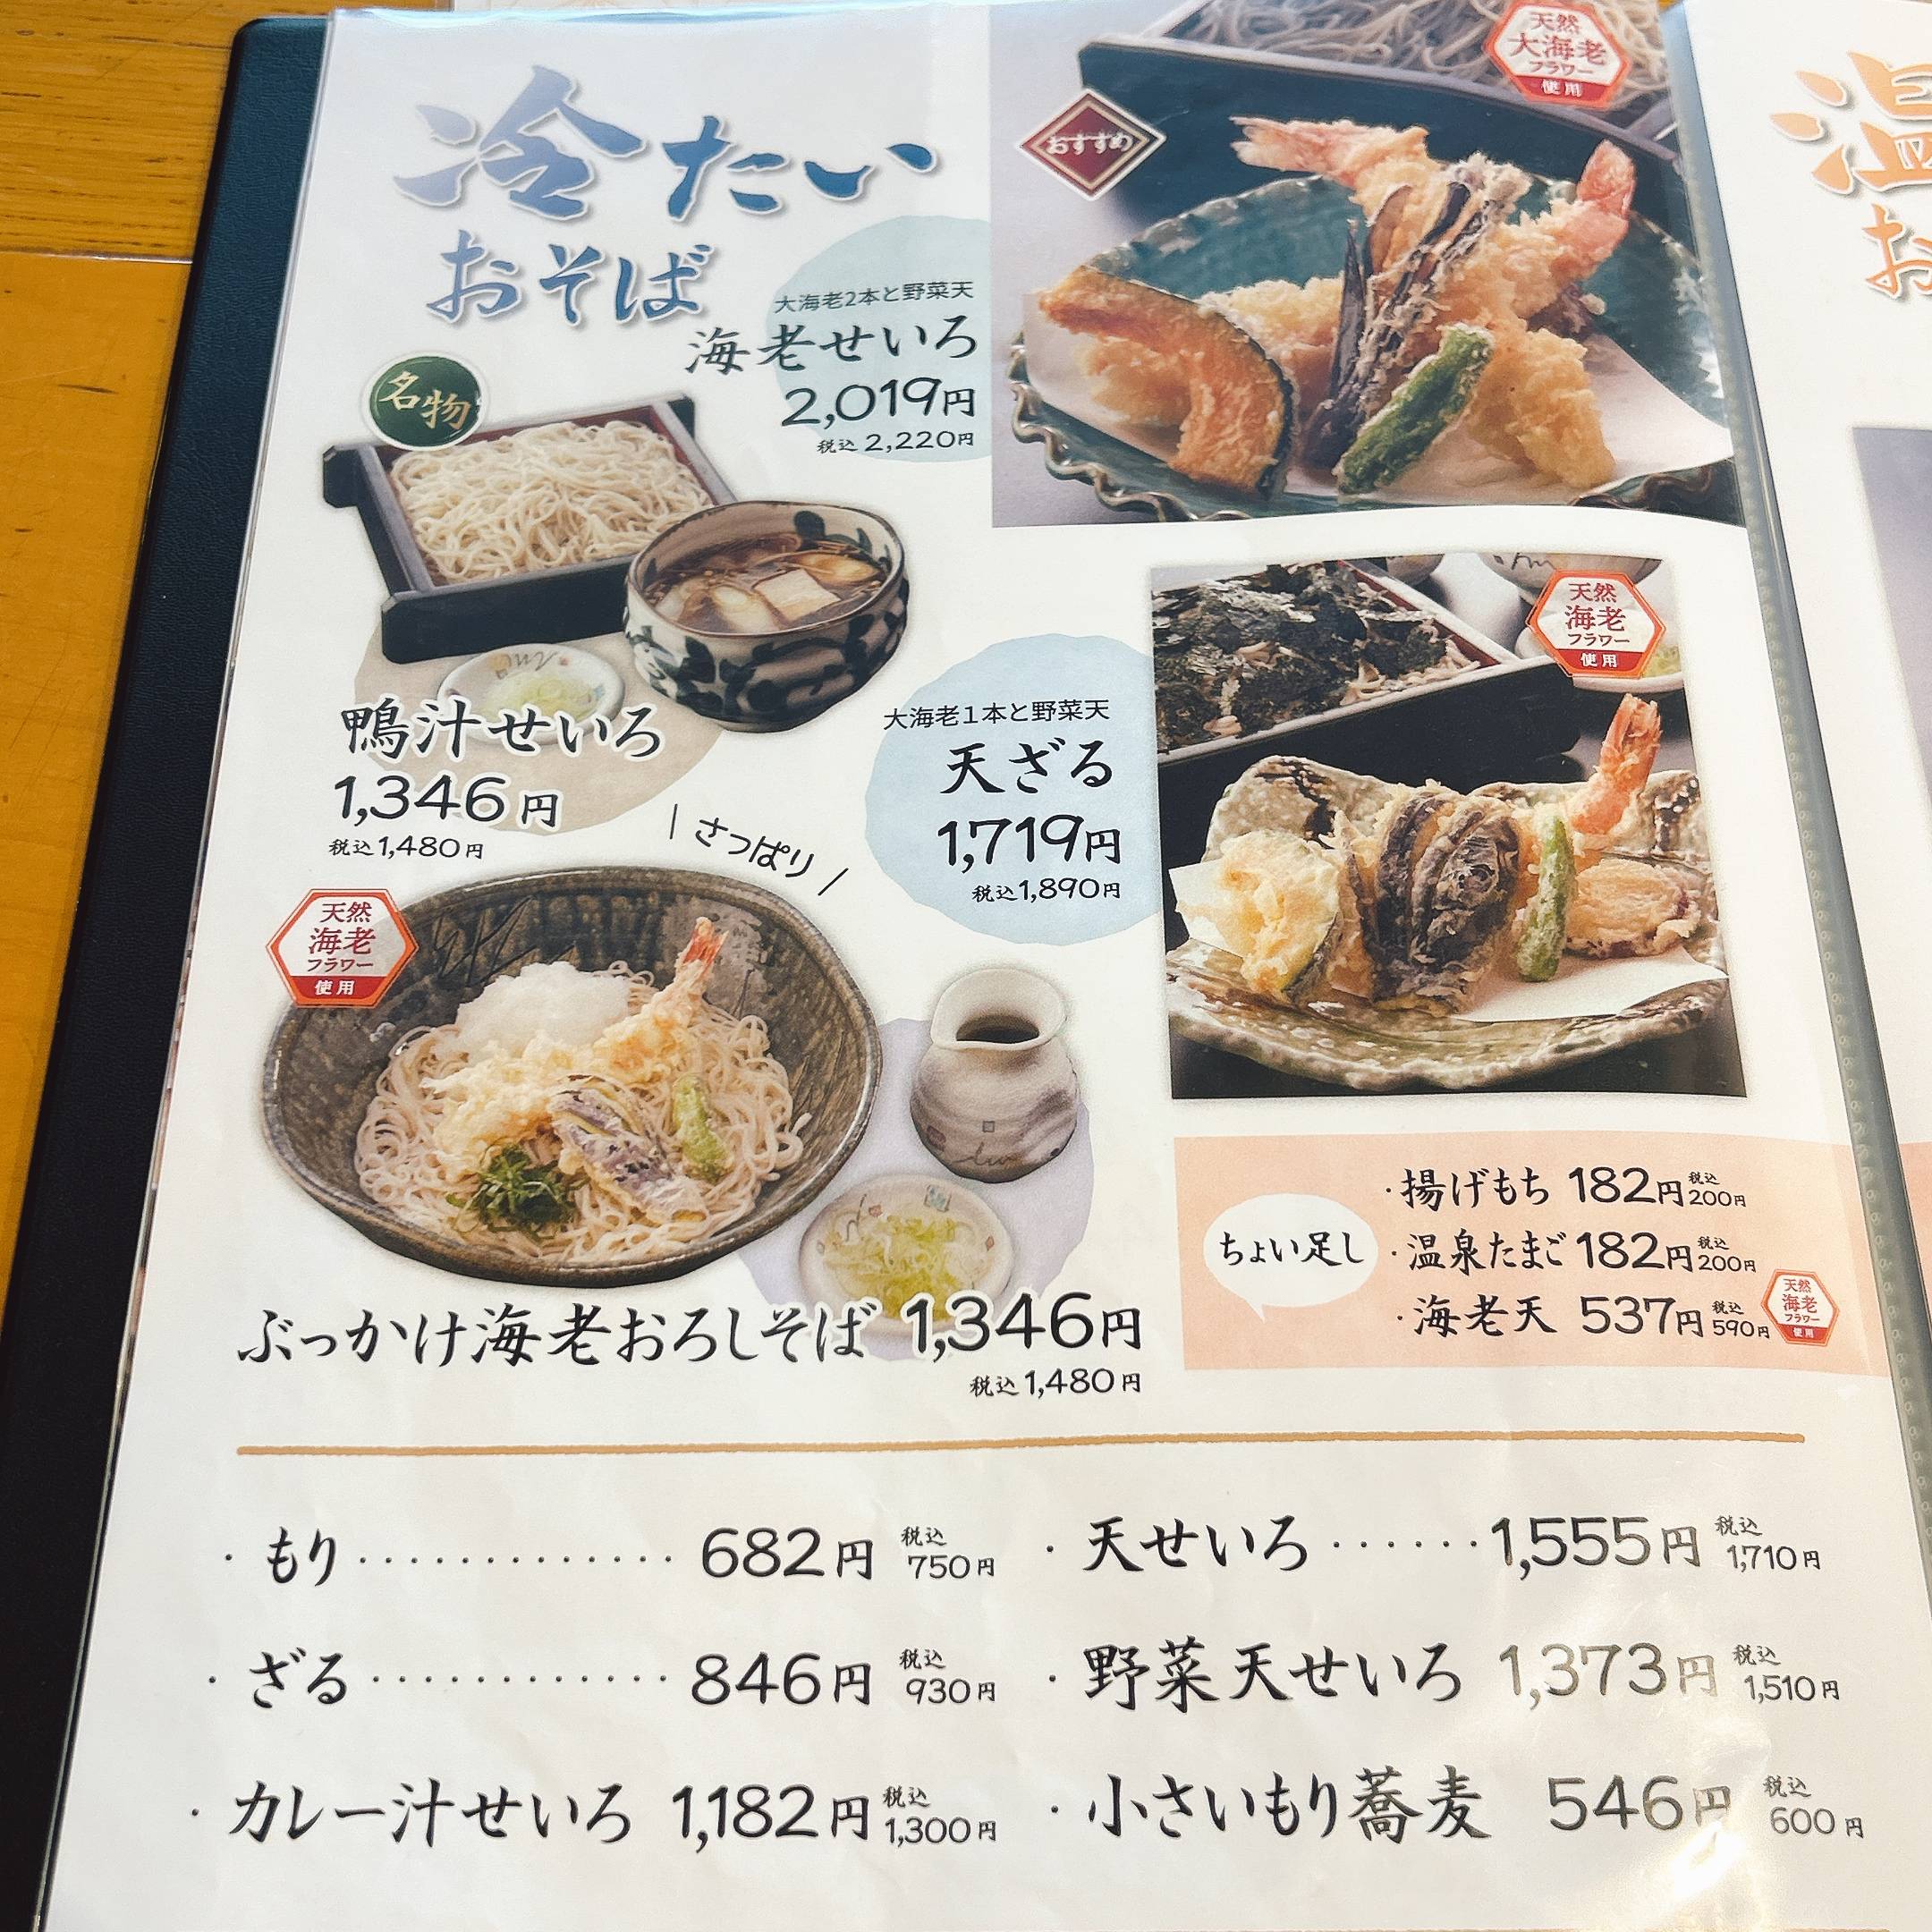 冷たい
おそば
天然
大海老
フラワー
使用
おすすめ
大海老2本と野菜天
海老せいろ
2,019円
税込 2,220円
名物
鴨汁せいろ
1,346円
税込1,480円
天然
海老
フラワー
使用
大海老1本と野菜天
天ざる
1,719円
税込1,890円
さっぱり
天然
海老
フラワー
使用
ぶっかけ海老おろしそば 1,346円
税込1,480円
ちょい足し
・揚げもち 182円 税込200円
・温泉たまご 182円 税込200円
・海老天 537円 税込590円
天然
海老
フラワー
使用
・もり············· 682円 税込750円
・ざる············· 846円 税込930円
・カレー汁せいろ 1,182円 税込1,300円
・天せいろ······1,555円 税込1,710円
・野菜天せいろ 1,373円 税込1,510円
・小さいもり蕎麦 546円 税込600円
温
お